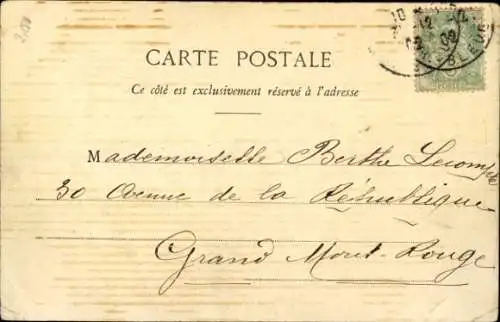 2.50
CARTE POSTALE
Ce côté est exclusivement réservé à l'adresse
Mademoiselle Berthe Lecomte
30 Avenue de la République
Grand Mont-Rouge